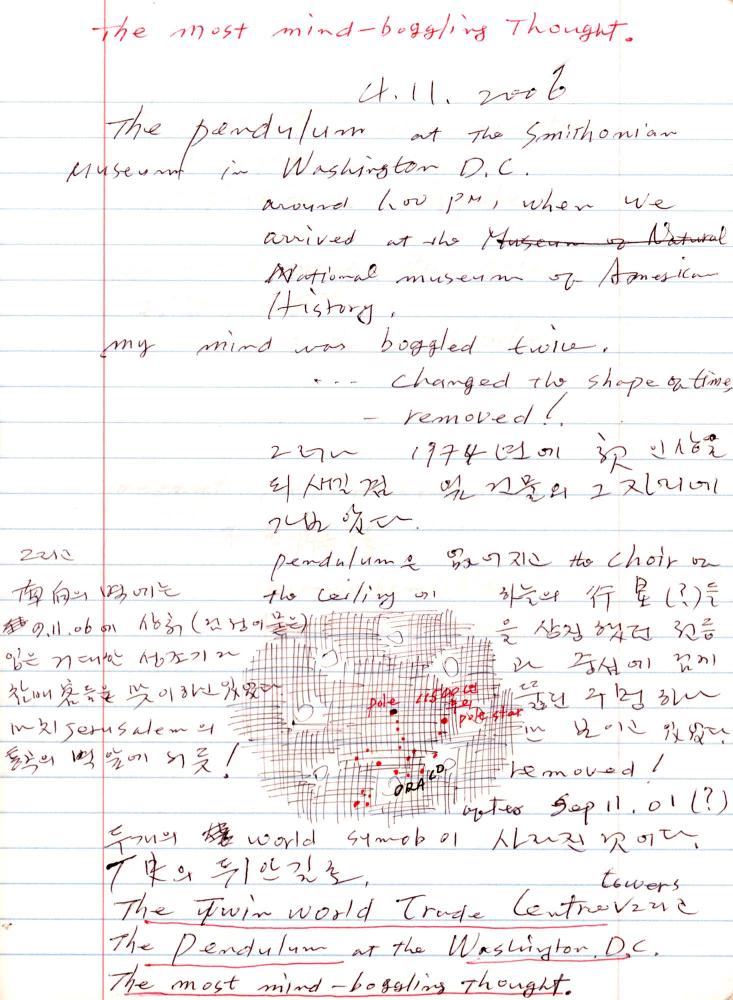 The most mind-boggling Thought.
4.11. 2006
The pendulum at the Smithonian
Museum in Washington D.C.
around 1:00 PM, when we
arrived at the Museum of Natural
National museum of American
History.
my mind was boggled twice.
... changed the shape of time,
- removed!
그러나 1974년에 첫 인상을
되새길 겸 옛 건물의 그 자리에
가보았다.
pendulum은 없어지고 the choir on
the ceiling에 하늘의 行星(?)들
을 상징했던 원름
과 중심에 길게
구멍 하나
보이고 있었다.
removed!
after Sep 11. 01 (?)
그리고
南向의 벽에는
9.11.06에 상
입은 거대한 성조기가
참배 을 뜻이하고 있었다.
마치 Jerusalem의
벽 앞에 서듯!
pole 11500년
pole star
DRACO
두개의 world symob이 사라진 것이다.
T 뒤안길로,
The Twin world Trade Centre towers 그리고
The Pendulum at the Washington, D.C.
The most mind-boggling thought.